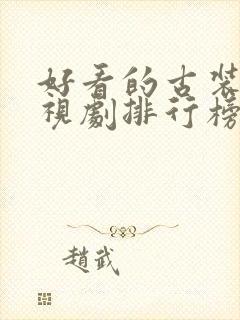 好看的古装
視劇排行榜
趙武